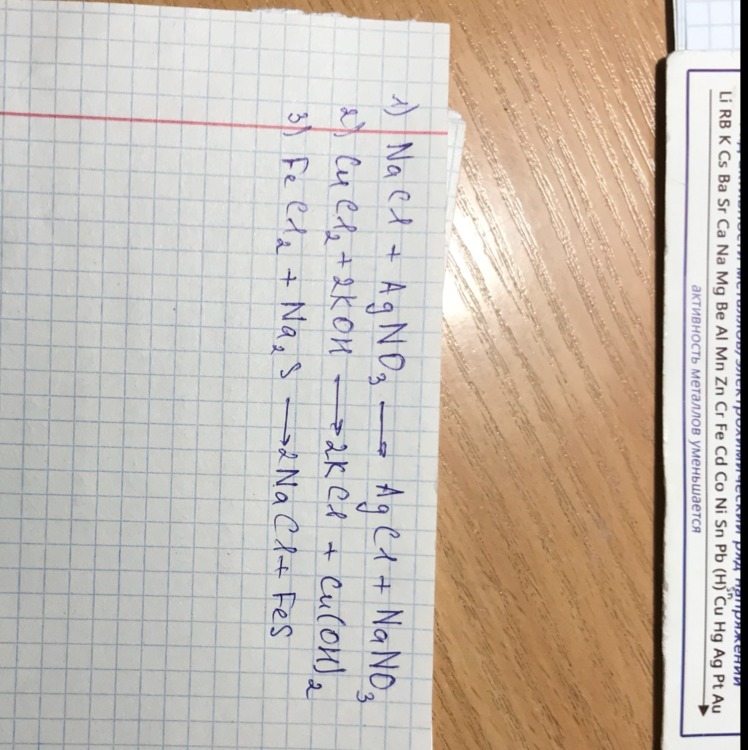 1) NaCl + AgNO₃ ⟶ AgCl + NaNO₃
2) CuCl₂ + 2KOH ⟶ 2KCl + Cu(OH)₂
3) FeCl₂ + Na₂S ⟶ 2NaCl + FeS
ряд напряжений
Li RB K Cs Ba Sr Ca Na Mg Be Al Mn Zn Cr Fe Cd Co Ni Sn Pb (H) Cu Hg Ag Pt Au
активность металлов уменьшается